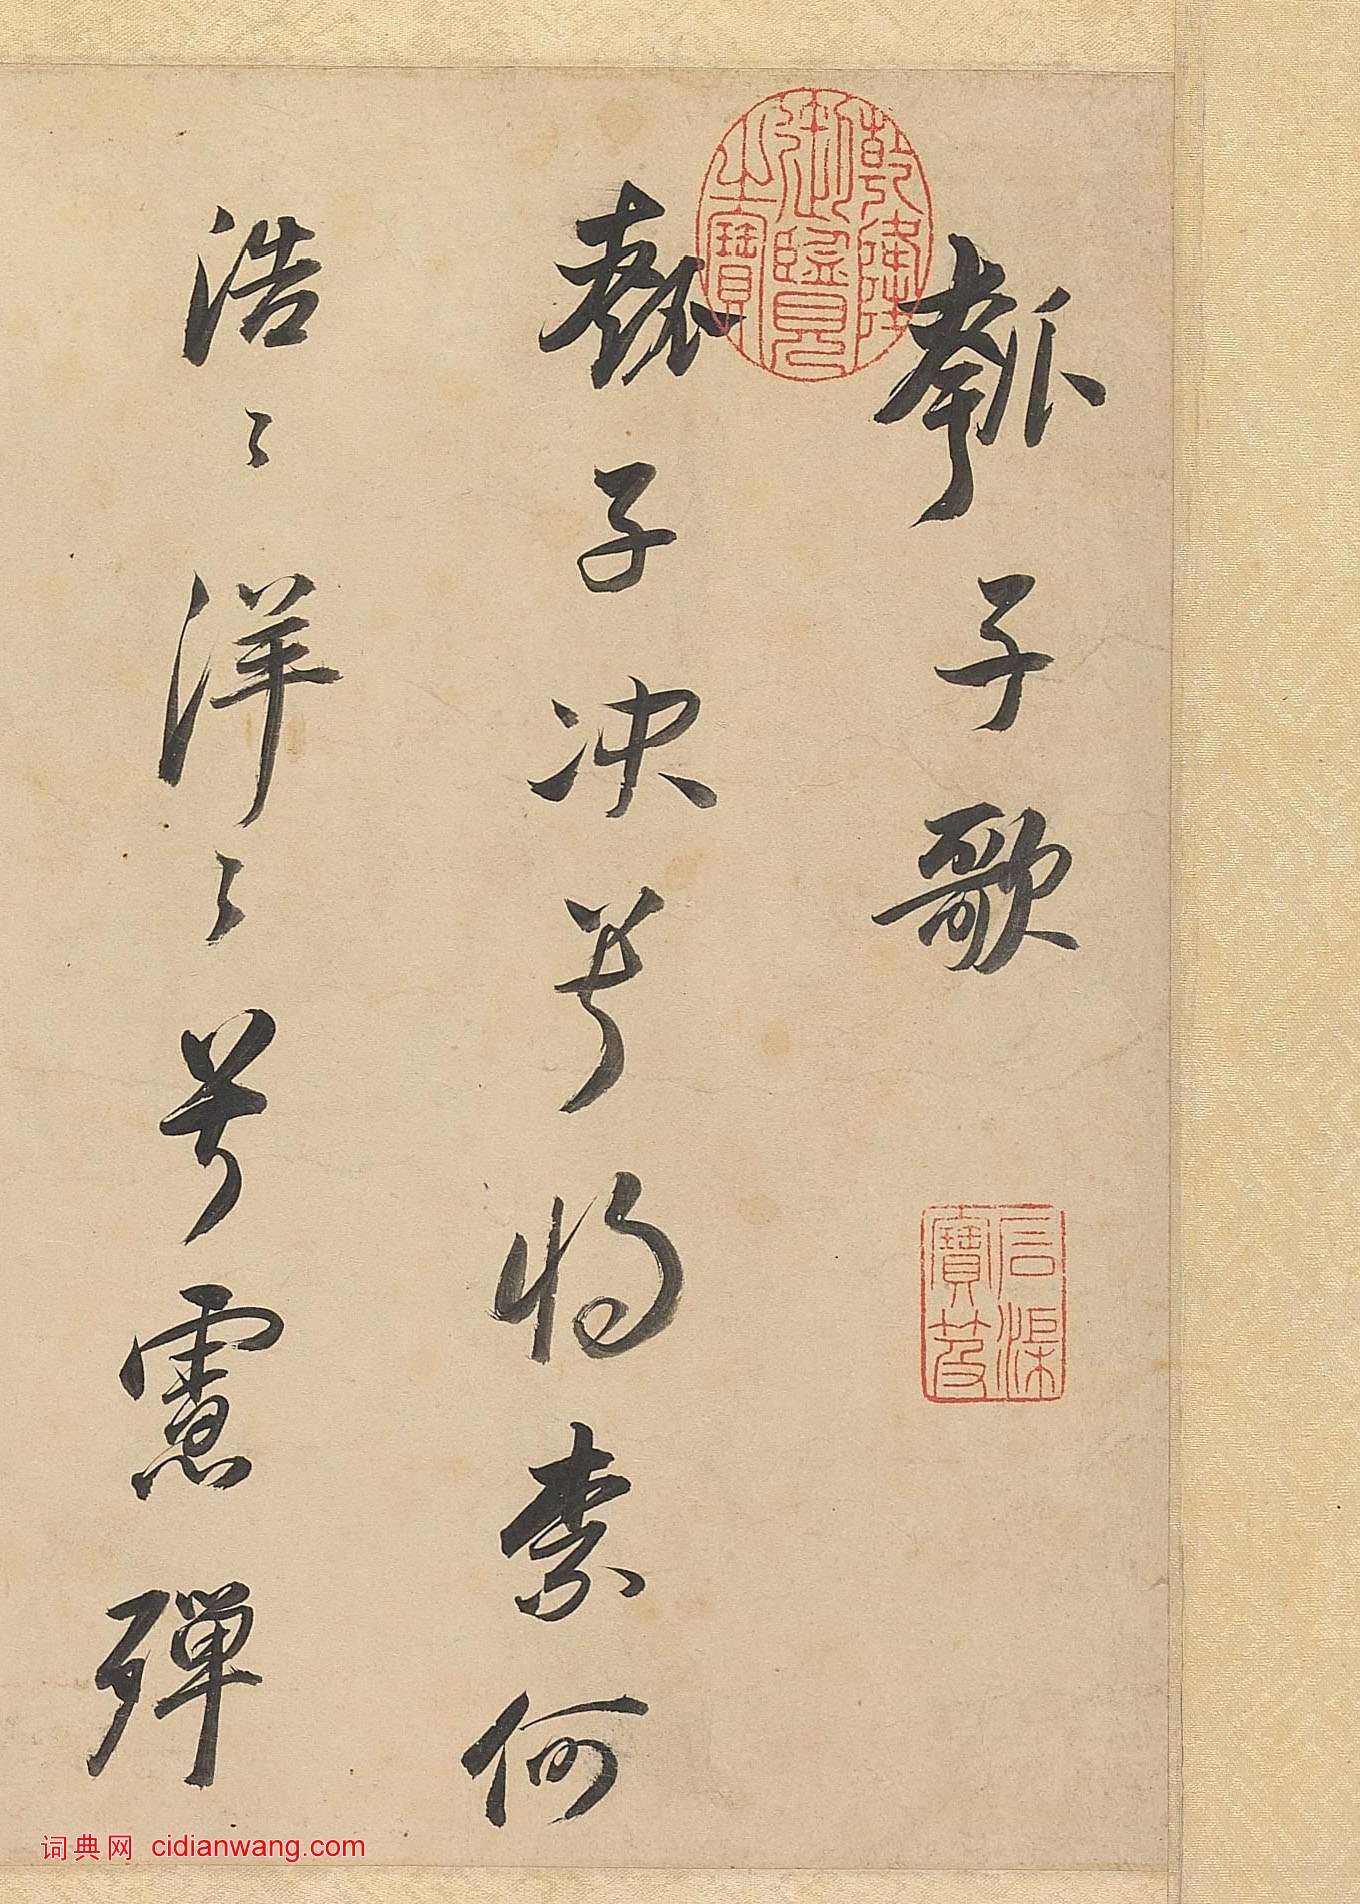 瓠子歌
乾隆御覽之寶
石渠寶笈
瓠子决兮将柰何
浩〻洋〻兮慮殫
词典网 cidianwang.com